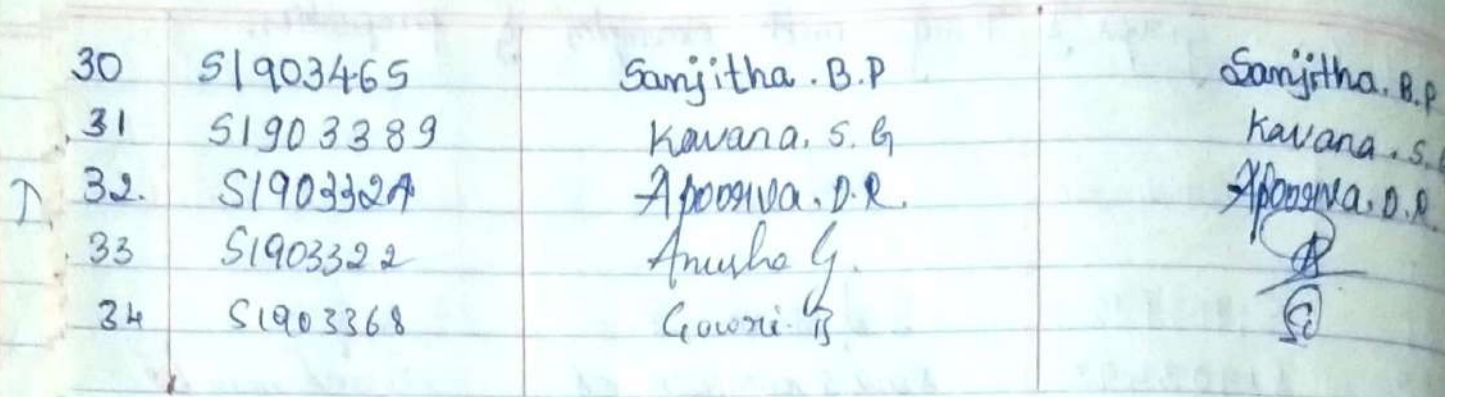 30 S1903465 Sanjitha . B.P Sanjitha. B.P
31 S1903389 Kavana. S. G Kavana . S.
32. S1903324 Apoorva. D.R. Apoorva. D.R
33 S1903322 Anusha G.
34 S1903368 Gowri. B